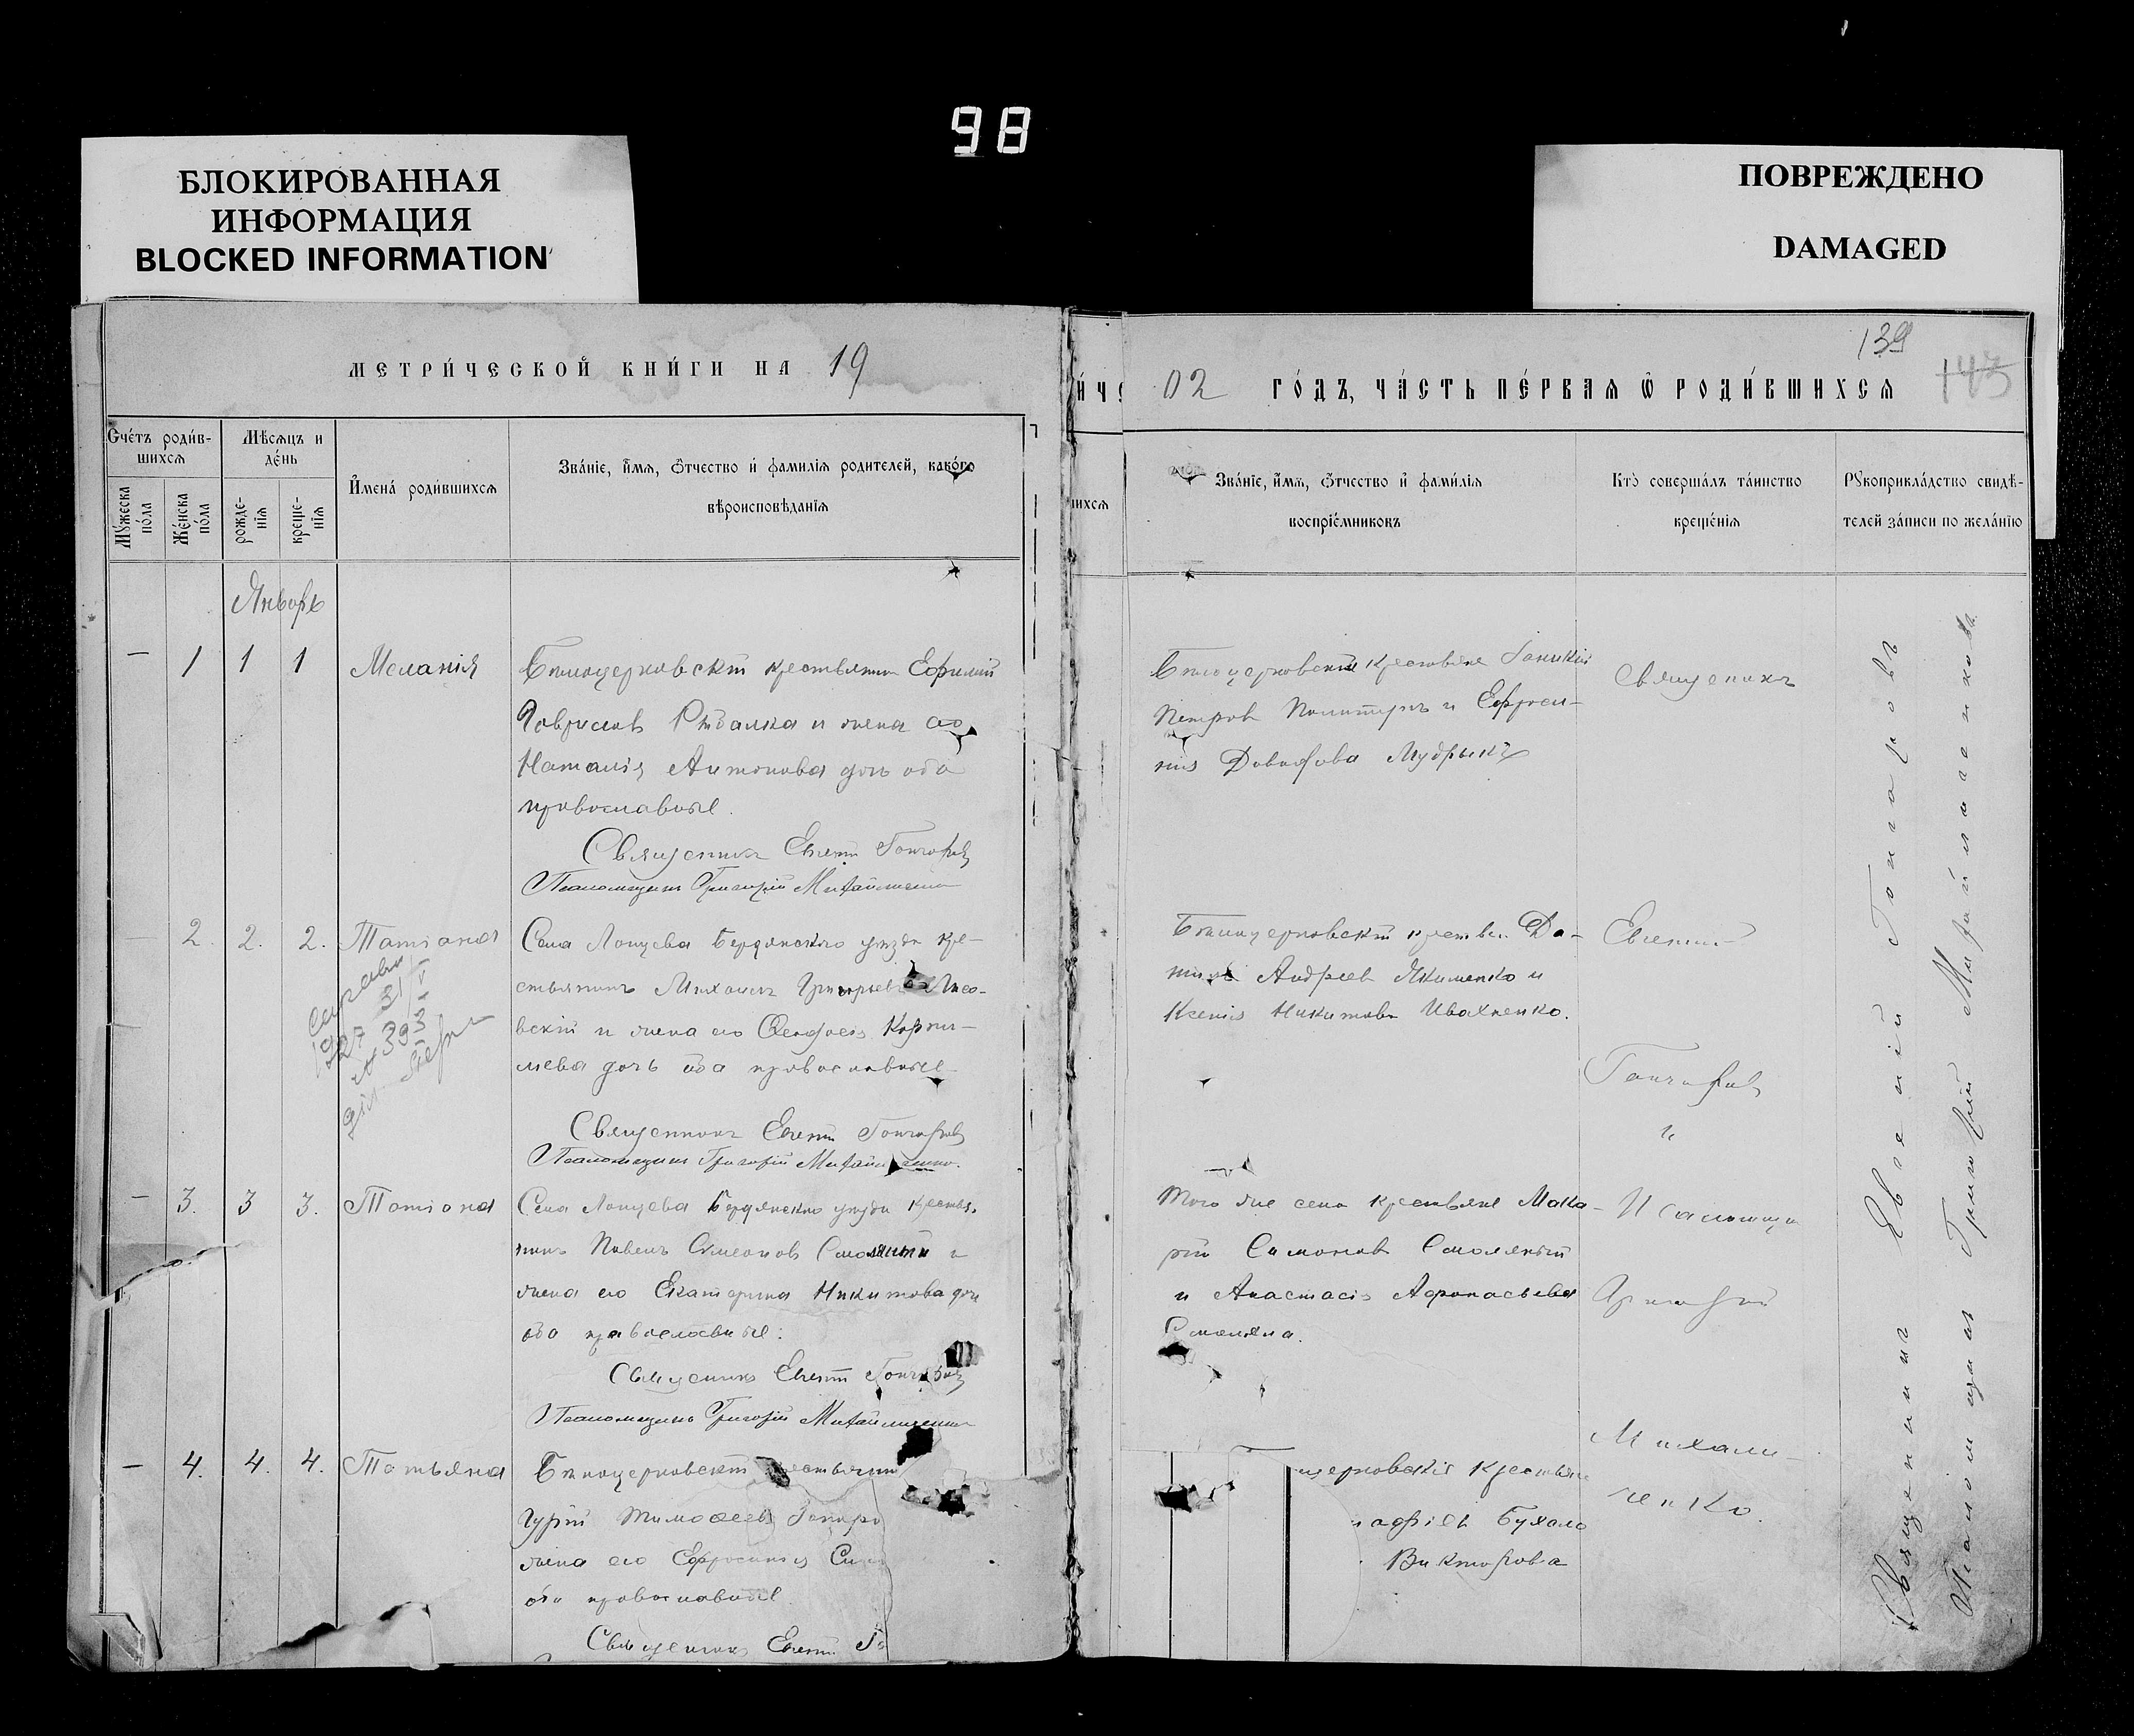 98
БЛОКИРОВАННАЯ
ИНФОРМАЦИЯ
BLOCKED INFORMATION
ПОВРЕЖДЕНО
DAMAGED
139
143
МЕТРИ́ЧЕСКОЙ КНИ́ГИ НА 19
02 ГО́ДЪ, ЧА́СТЬ ПЕ́РВАЯ Ѡ РОДИ́ВШИХСЯ
Счéтъ роди́в-
шихся
Мѣсяцъ и
де́нь
Мꙋ́жеска
по́ла
Же́нска
по́ла
рожде́-
нїя
креще́-
нїя
И҆мена́ роди́вшихся
Зва́нїе, и҆́мя, ѻ҆́тчество и҆ фами́лїя родителей, како́го
вѣроисповѣ́данїя
Зва́нїе, и҆́мя, ѻ҆́тчество и҆ фами́лїя
воспрїе́мниковъ
Кто̀ соверша́лъ та́инство
креще́нїя
Рꙋкоприкла́дство свидѣ́-
телей за́писи по жела́нїю
Январь
— 1 1 1 Меланія
Бѣлоцерковскій крестьянинъ Ефимій
Гавриловъ Рыбалка и жена его
Наталія Антонова дочь оба
православные.
Священникъ Евгеній Гончаровъ
Псаломщикъ Григорій Михайличенко
Бѣлоцерковскіе крестьяне Іоникій
Петровъ и Ефроси-
нія Мудрыкъ
Священникъ
— 2. 2. 2. Татіана
Села Попуева Бердянскаго уѣзда кре-
стьянинъ Михаилъ Григорьевъ
и жена его Ѳеодосія Корни-
лева дочь оба православные
Священникъ Евгеній Гончаровъ
Псаломщикъ Григорій Михайличенко.
1927 31/V
№ 393
Андреевъ Якименко и
Ксенія Никитова Ивахненко.
Евгеній
Гончаровъ
и
— 3. 3 3. Татіана
Села Попуева Бердянскаго уѣзда крестья-
нинъ Павелъ Симеоновъ и
жена его Екатерина Никитова дочь
оба православные.
Священникъ Евгеній Гончаровъ
Псаломщикъ Григорій Михайличенко
Того же села крестьяне Мака-
рій Симоновъ Смоляный
и Анастасія Афанасьева
Смоляна.
Псаломщикъ
Григорій
Михайли-
ченко.
— 4. 4. 4. Татьяна
Бѣлоцерковскій крестьянинъ
Гурій Тимоѳеевъ
жена его Ефросинія
оба православные.
Священникъ Евгеній Го
церковскіе крестьяне
Бухало
Викторова
Священникъ Евгеній Гончаровъ
Псаломщикъ Григорій Михайличенко.